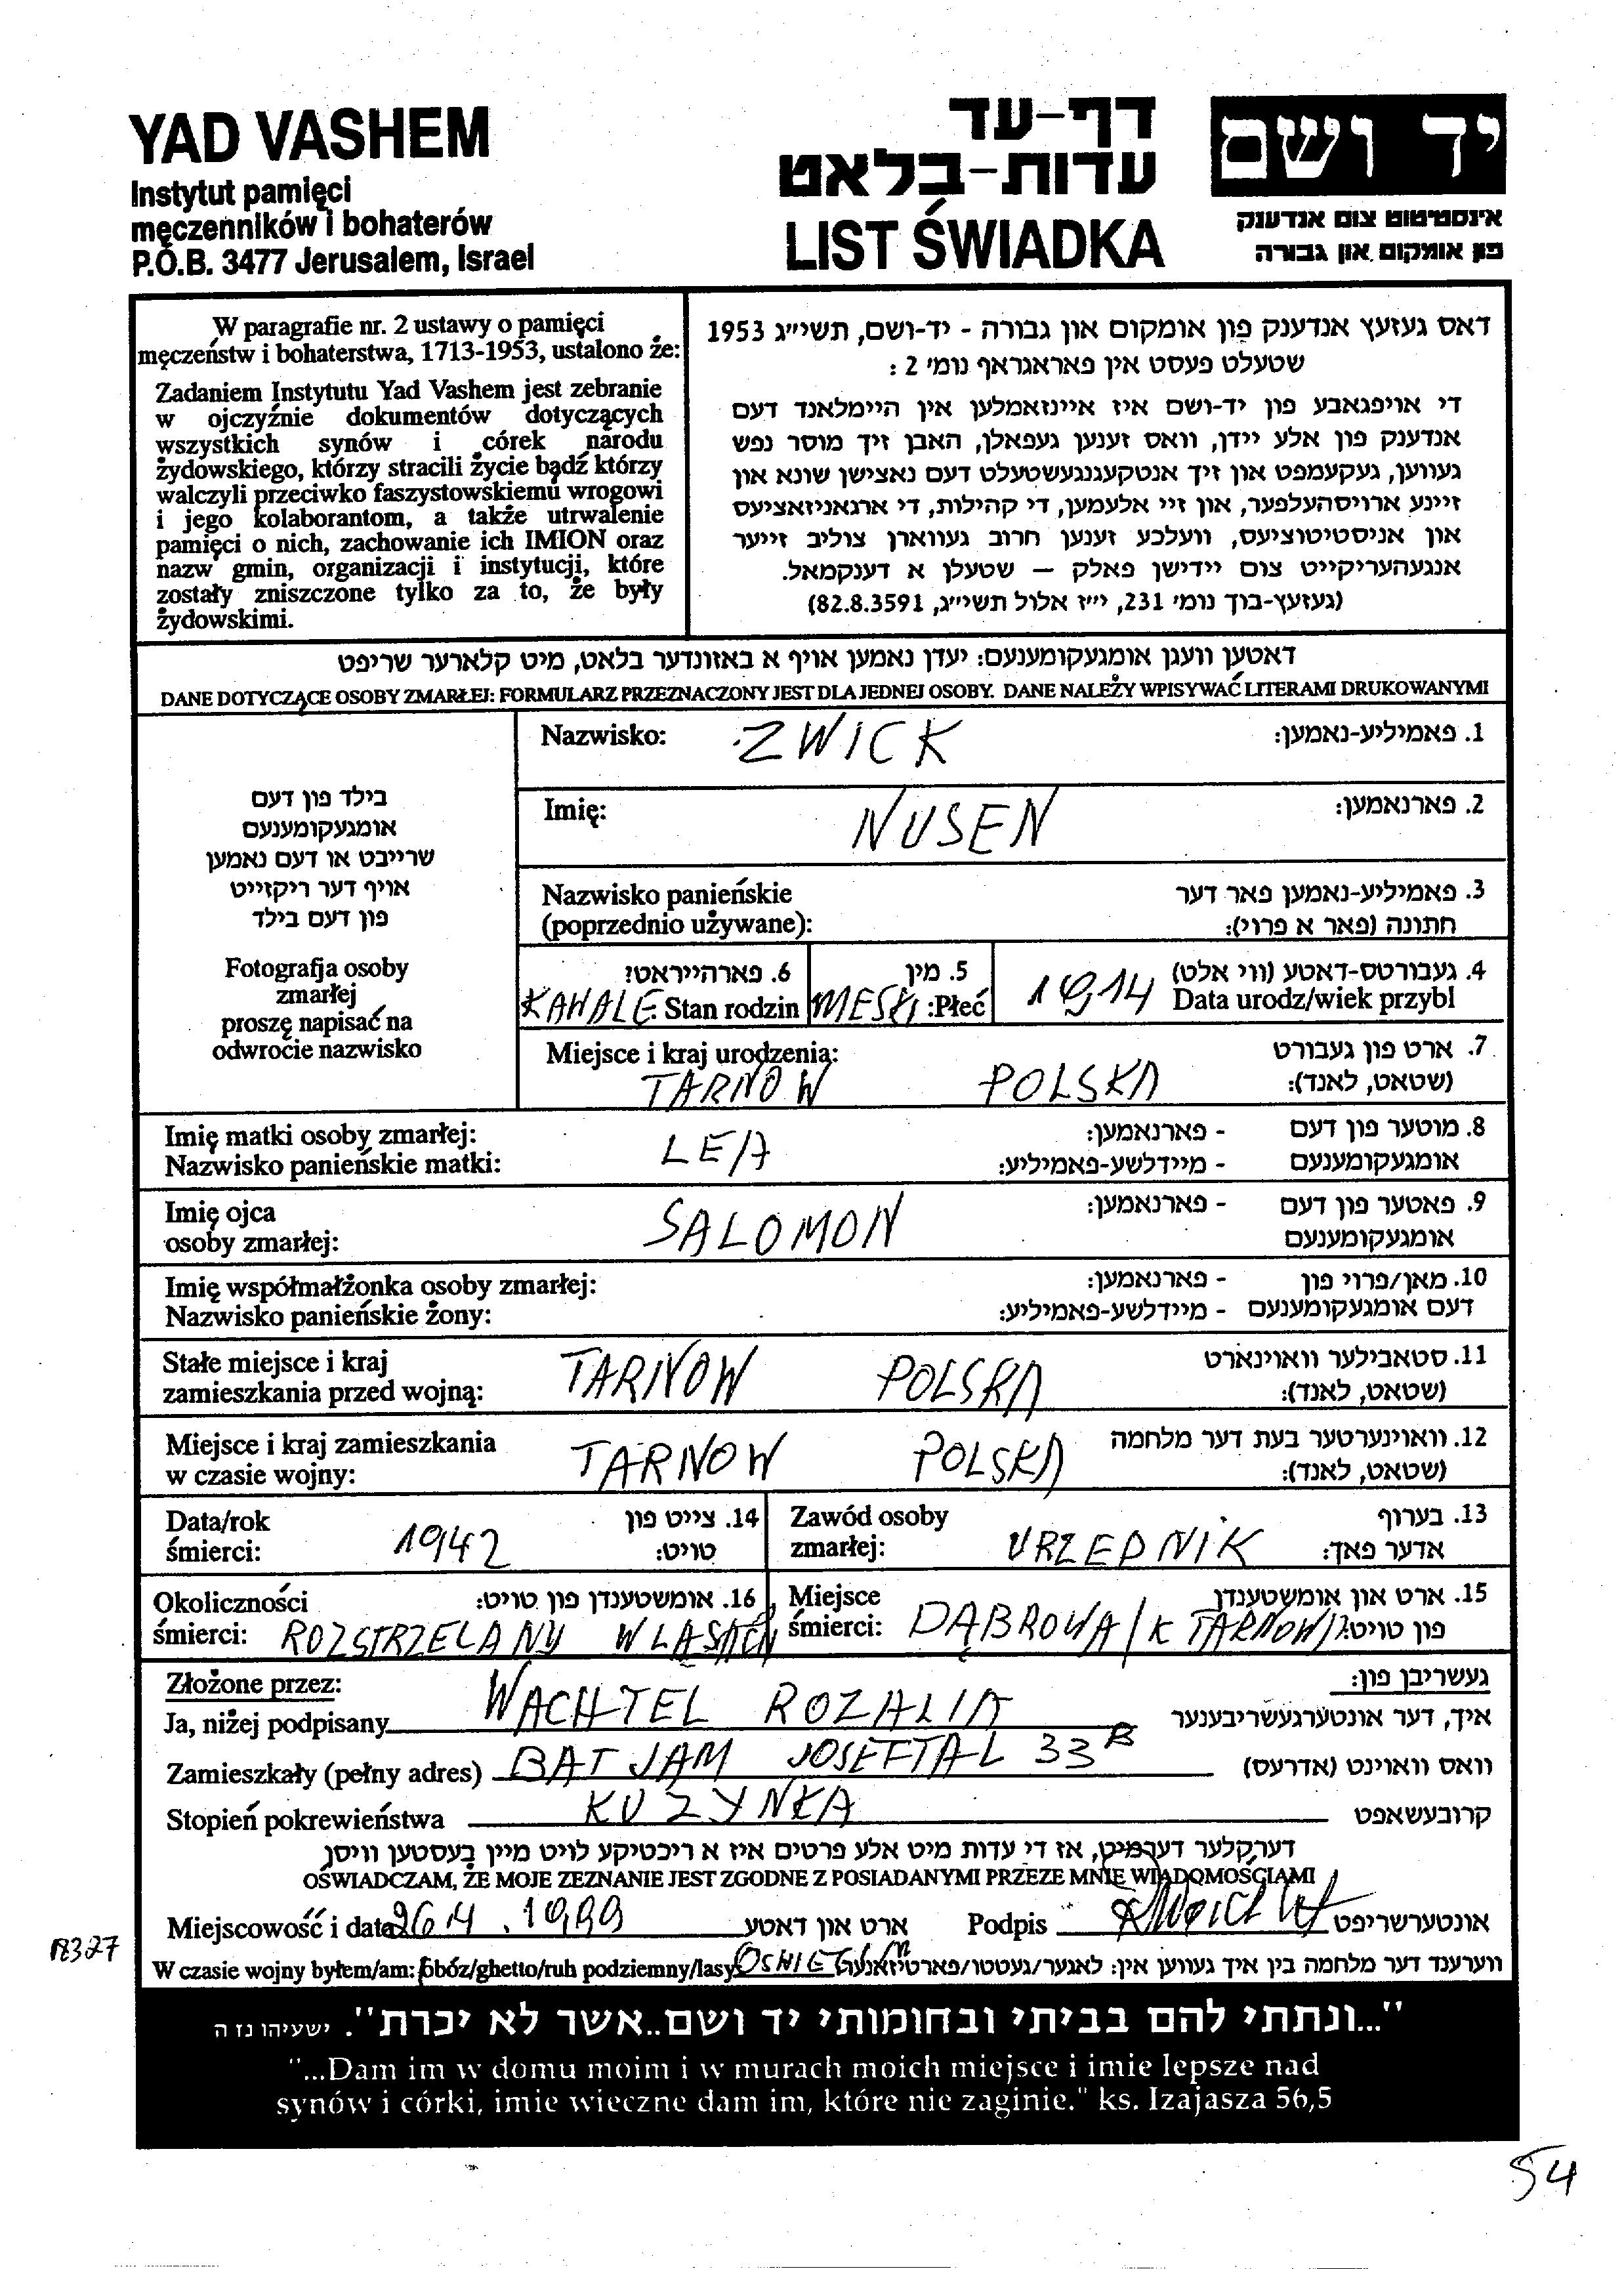 YAD VASHEM
Instytut pamięci
męczenników i bohaterów
P.O.B. 3477 Jerusalem, Israel
דף-עד
עדות-בלאט
LIST ŚWIADKA
יד ושם
אינסטיטוט צום אנדענק
פון אומקום און גבורה
W paragrafie nr. 2 ustawy o pamięci
męczeństw i bohaterstwa, 1713-1953, ustalono że:
Zadaniem Instytutu Yad Vashem jest zebranie
w ojczyźnie dokumentów dotyczących
wszystkich synów i córek narodu
żydowskiego, którzy stracili życie bądź którzy
walczyli przeciwko faszystowskiemu wrogowi
i jego kolaborantom, a także utrwalenie
pamięci o nich, zachowanie ich IMION oraz
nazw gmin, organizacji i instytucji, które
zostały zniszczone tylko za to, że były
żydowskimi.
דאס געזעץ אנדענק פון אומקום און גבורה - יד-ושם, תשי״ג 1953
שטעלט פעסט אין פאראגראף נומ׳ 2 :
די אויפגאבע פון יד-ושם איז איינזאמלען אין היימלאנד דעם
אנדענק פון אלע יידן, וואס זענען געפאלן, האבן זיך מוסר נפש
געווען, געקעמפט און זיך אנטקעגנגעשטעלט דעם נאצישן שונא און
זיינע ארויסהעלפער, און זיי אלעמען, די קהילות, די ארגאניזאציעס
און אניסטיטוציעס, וועלכע זענען חרוב געווארן צוליב זייער
אנגעהעריקייט צום יידישן פאלק – שטעלן א דענקמאל.
(געזעץ-בוך נומ׳ 231, י״ז אלול תשי״ג, 82.8.3591)
דאטען וועגן אומגעקומענעם: יעדן נאמען אויף א באזונדער בלאט, מיט קלארער שריפט
DANE DOTYCZĄCE OSOBY ZMARŁEJ: FORMULARZ PRZEZNACZONY JEST DLA JEDNEJ OSOBY. DANE NALEŻY WPISYWAĆ LITERAMI DRUKOWANYMI
בילד פון דעם
אומגעקומענעם
שרייבט או דעם נאמען
אויף דער ריקזייט
פון דעם בילד
Fotografja osoby
zmarłej
proszę napisać na
odwrocie nazwisko
Nazwisko: ZWICK 1. פאמיליע-נאמען:
Imię: NUSEN 2. פארנאמען:
Nazwisko panieńskie 3. פאמיליע-נאמען פאר דער
(poprzednio używane): חתונה (פאר א פרוי):
6. פארהייראט? 5. מין 4. געבורטס-דאטע (ווי אלט)
KAWALE Stan rodzin MESKI :Płeć 1914 Data urodz/wiek przybl
Miejsce i kraj urodzenia: 7. ארט פון געבורט
TARNOW POLSKA (שטאט, לאנד):
Imię matki osoby zmarłej: LEA - פארנאמען: 8. מוטער פון דעם
Nazwisko panieńskie matki: - מיידלשע-פאמיליע: אומגעקומענעם
Imię ojca - פארנאמען: 9. פאטער פון דעם
osoby zmarłej: SALOMON אומגעקומענעם
Imię współmałżonka osoby zmarłej: - פארנאמען: 10. מאן/פרוי פון
Nazwisko panieńskie żony: - מיידלשע-פאמיליע: דעם אומגעקומענעם
Stałe miejsce i kraj 11. סטאבילער וואוינארט
zamieszkania przed wojną: TARNOW POLSKA (שטאט, לאנד):
Miejsce i kraj zamieszkania 12. וואוינערטער בעת דער מלחמה
w czasie wojny: TARNOW POLSKA (שטאט, לאנד):
Data/rok 14. צייט פון Zawód osoby 13. בערוף
śmierci: 1942 טויט: zmarłej: URZEDNIK אדער פאך:
Okoliczności 16. אומשטענדן פון טויט: Miejsce 15. ארט און אומשטענדן
śmierci: ROZSTRZELANY W śmierci: DĄBROWA / K TARNOWA פון טויט:
Złożone przez: געשריבן פון:
Ja, niżej podpisany WACHTEL ROZALIA איך, דער אונטערגעשריבענער
Zamieszkały (pełny adres) BAT JAM JOSEFTAL 33B וואס וואוינט (אדרעס)
Stopień pokrewieństwa KUZYNKA קרובעשאפט
דערקלער דערמיט, אז די עדות מיט אלע פרטים איז א ריכטיקע לויט מיין בעסטען וויסן
OŚWIADCZAM, ŻE MOJE ZEZNANIE JEST ZGODNE Z POSIADANYMI PRZEZE MNIE WIADOMOŚCIAMI
Miejscowość i data 26.4.1999 ארט און דאטע Podpis אונטערשריפט
W czasie wojny byłem/am: obóz/ghetto/ruh podziemny/lasy ווערענד דער מלחמה בין איך געווען אין: לאגער/געטטו/פארטיזאנער
"...ונתתי להם בביתי ובחומותי יד ושם..אשר לא יכרת". ישעיהו נז ה
"...Dam im w domu moim i w murach moich miejsce i imie lepsze nad
synów i córki, imie wieczne dam im, które nie zaginie." ks. Izajasza 56,5
54